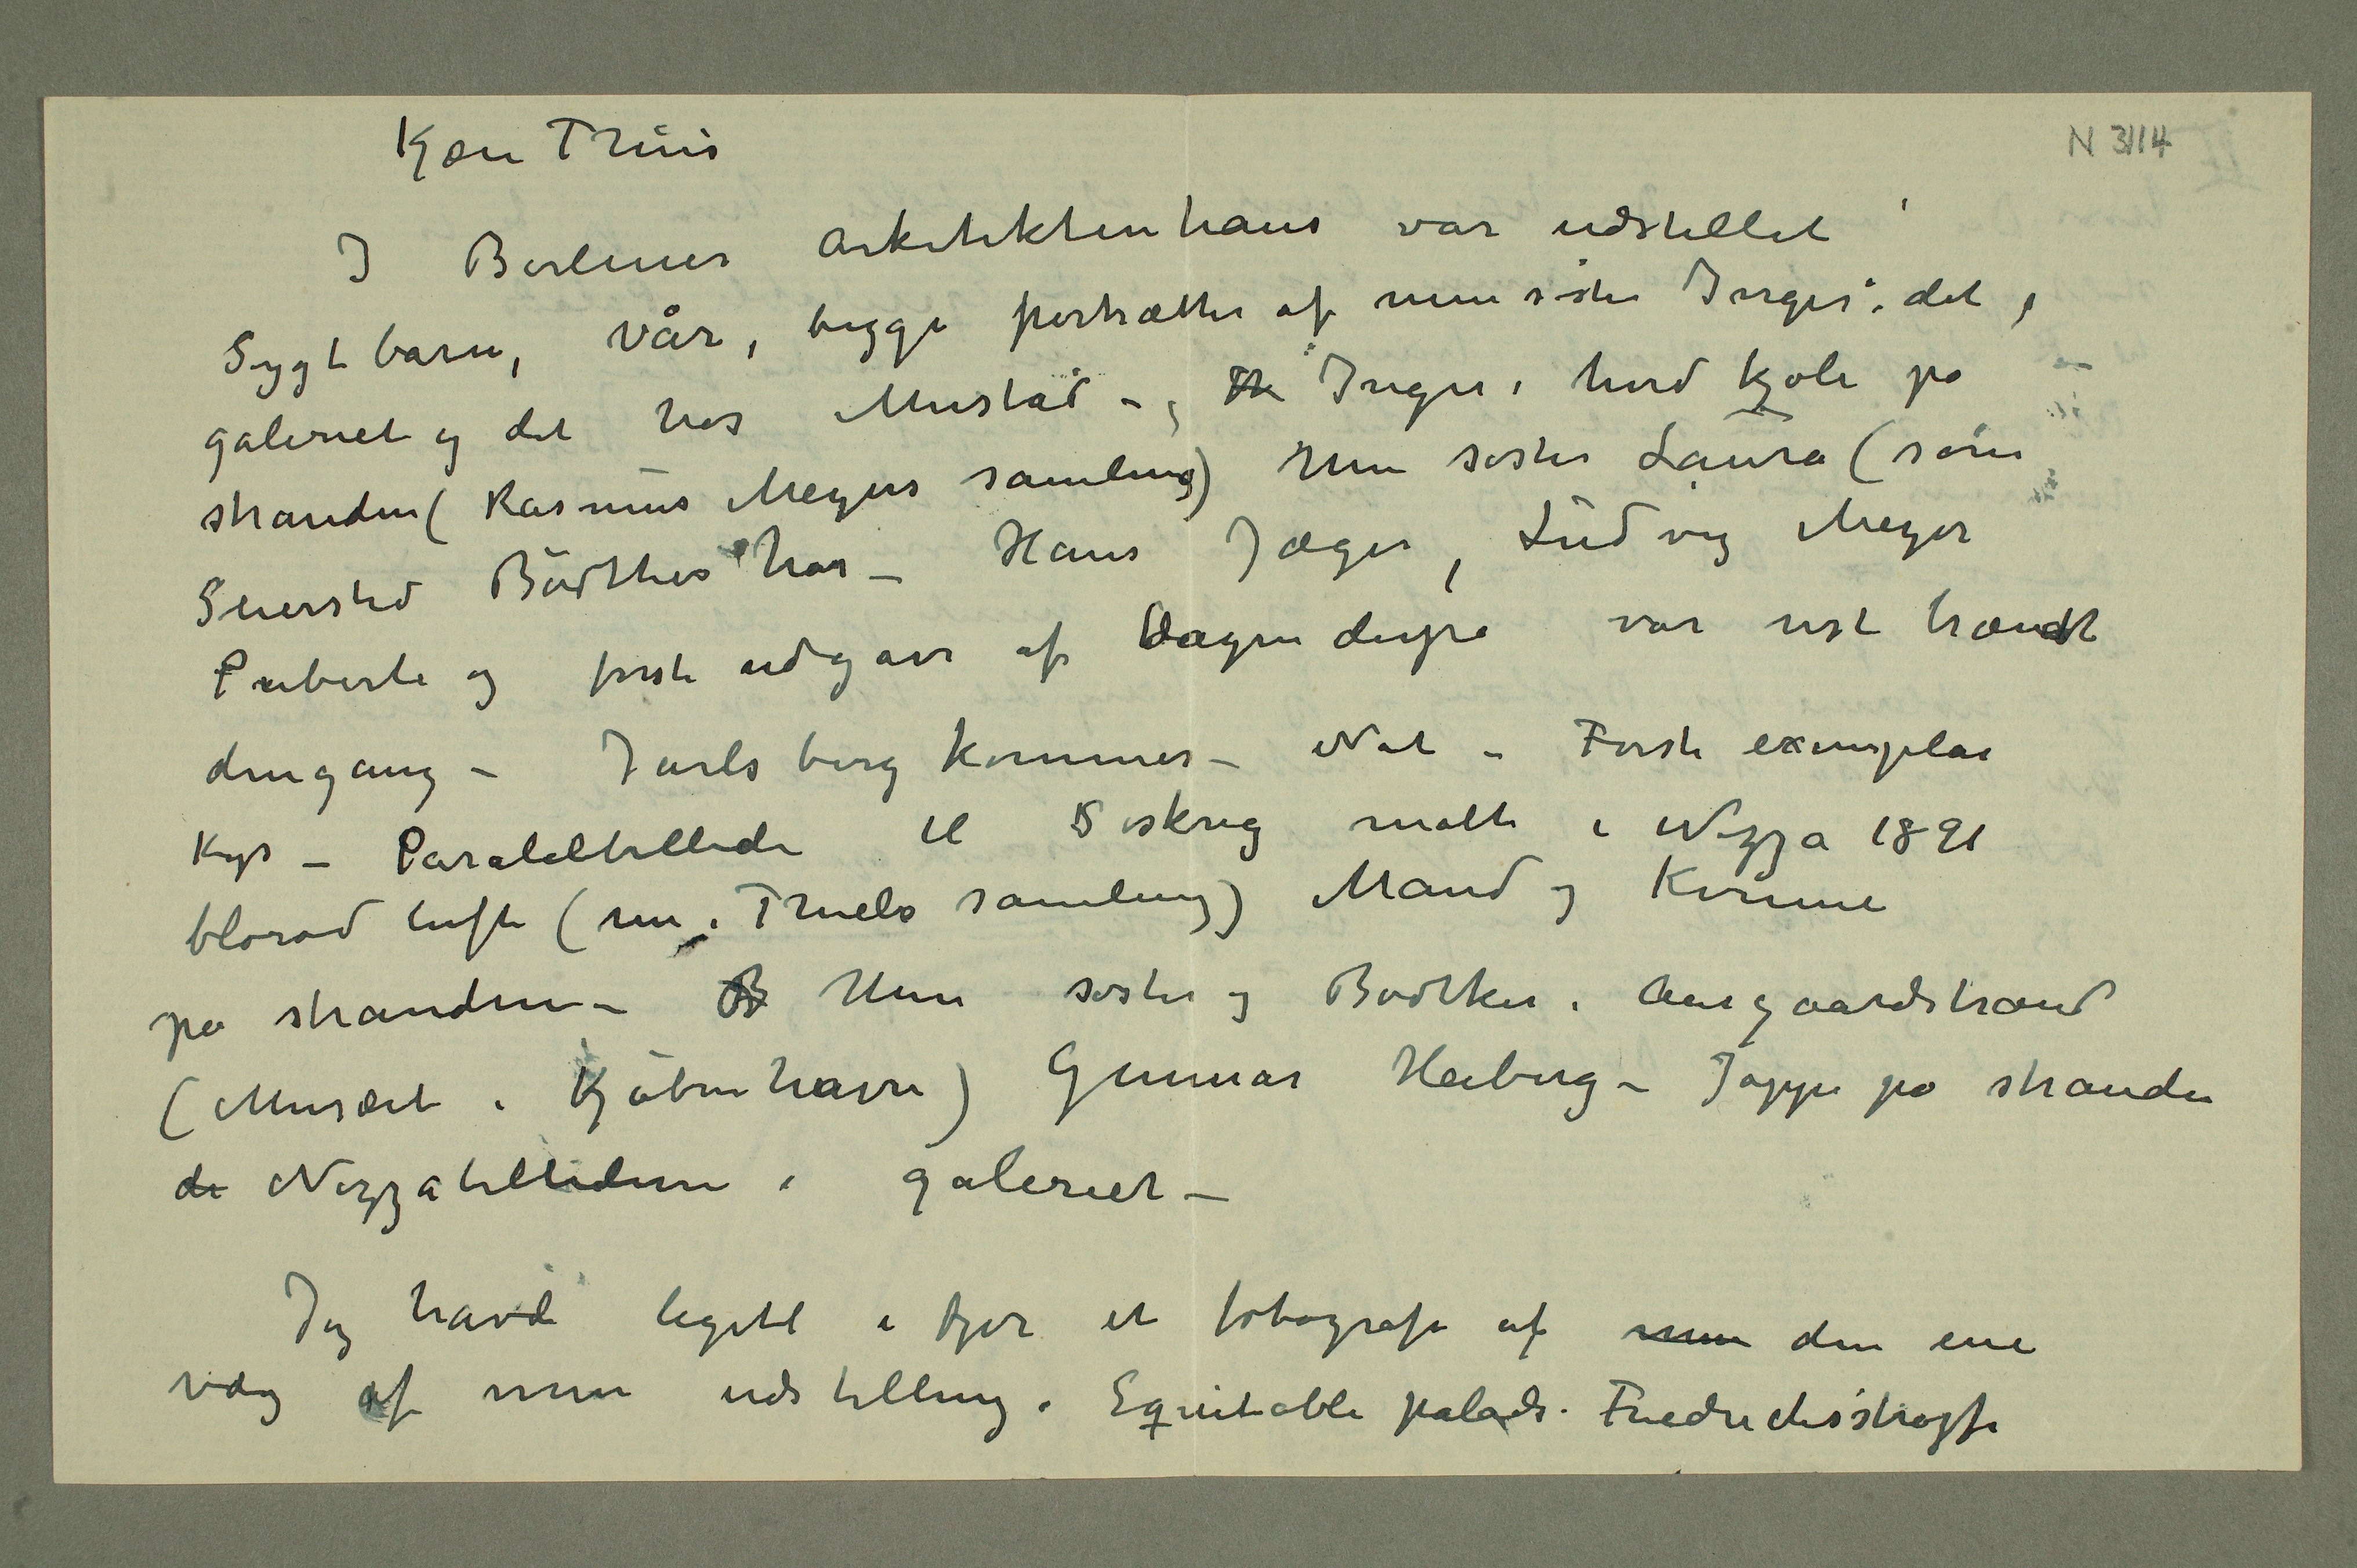 Kjære Thiis
N 3114
I Berliner Arkitektenhaus var udstillet
Sygt barn, Vår, begge portrætter af min søster Inger: det i
galeriet og det hos Mustad – og Inger i hvid kjole på
stranden (Rasmus Meyers samling) Min søster Laura (som
Seiersted Bødtker har – Hans Jæger, Ludvig Meyer
Puberte og første udgave af Dagen derpå var just brændt
dengang – Jarlsberg kommer – Nat – Første exemplar
Kys – Paralelbillede til Siskrig malt i Nizza 1891
blørød luft (nu i Thiels samling) Mand og Kvinne
på stranden – Min søster og Bødtker i Aasgaardstrand
(Musæet i Kjøbenhavn) Gunnar Heiberg – Jappe på stranden
de Nizzabillederne i galeriet –
Jeg havde ligetil i fjor et fotografi af min den ene
væg af min udstilling i Equitable palads. Friedrichsstraße